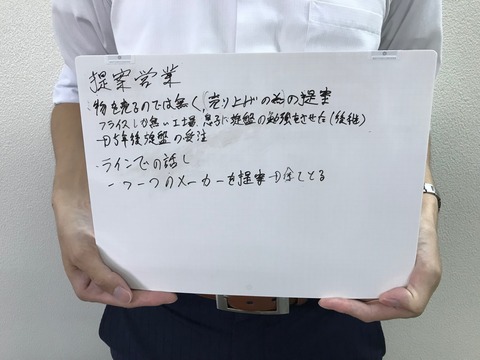 提案営業
・物を売るのでは無く「売り上げの為」の提案
フライスしか無い工場 息子に旋盤の勉強をさせた(後継)
→5年後旋盤の受注
・ラインでの話し
一つ一つのメーカーを提案→全てとる